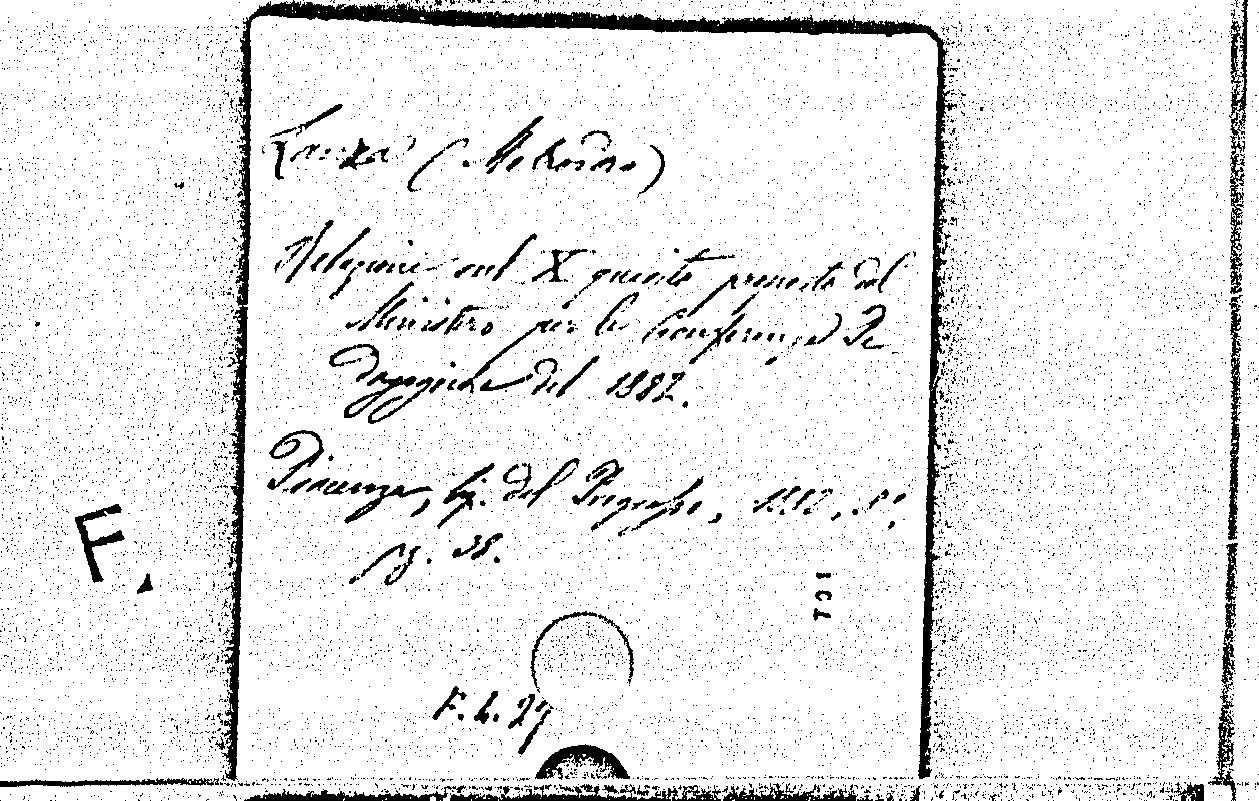 Lanza (Metrodoro)
Relazione sul X quesito proposto dal
Ministero per le Conferenze Pe
dagogiche del 1882.
Piacenza, tip. del Progresso, 1882, 8°,
pg. 38.
F.
F. L. 27